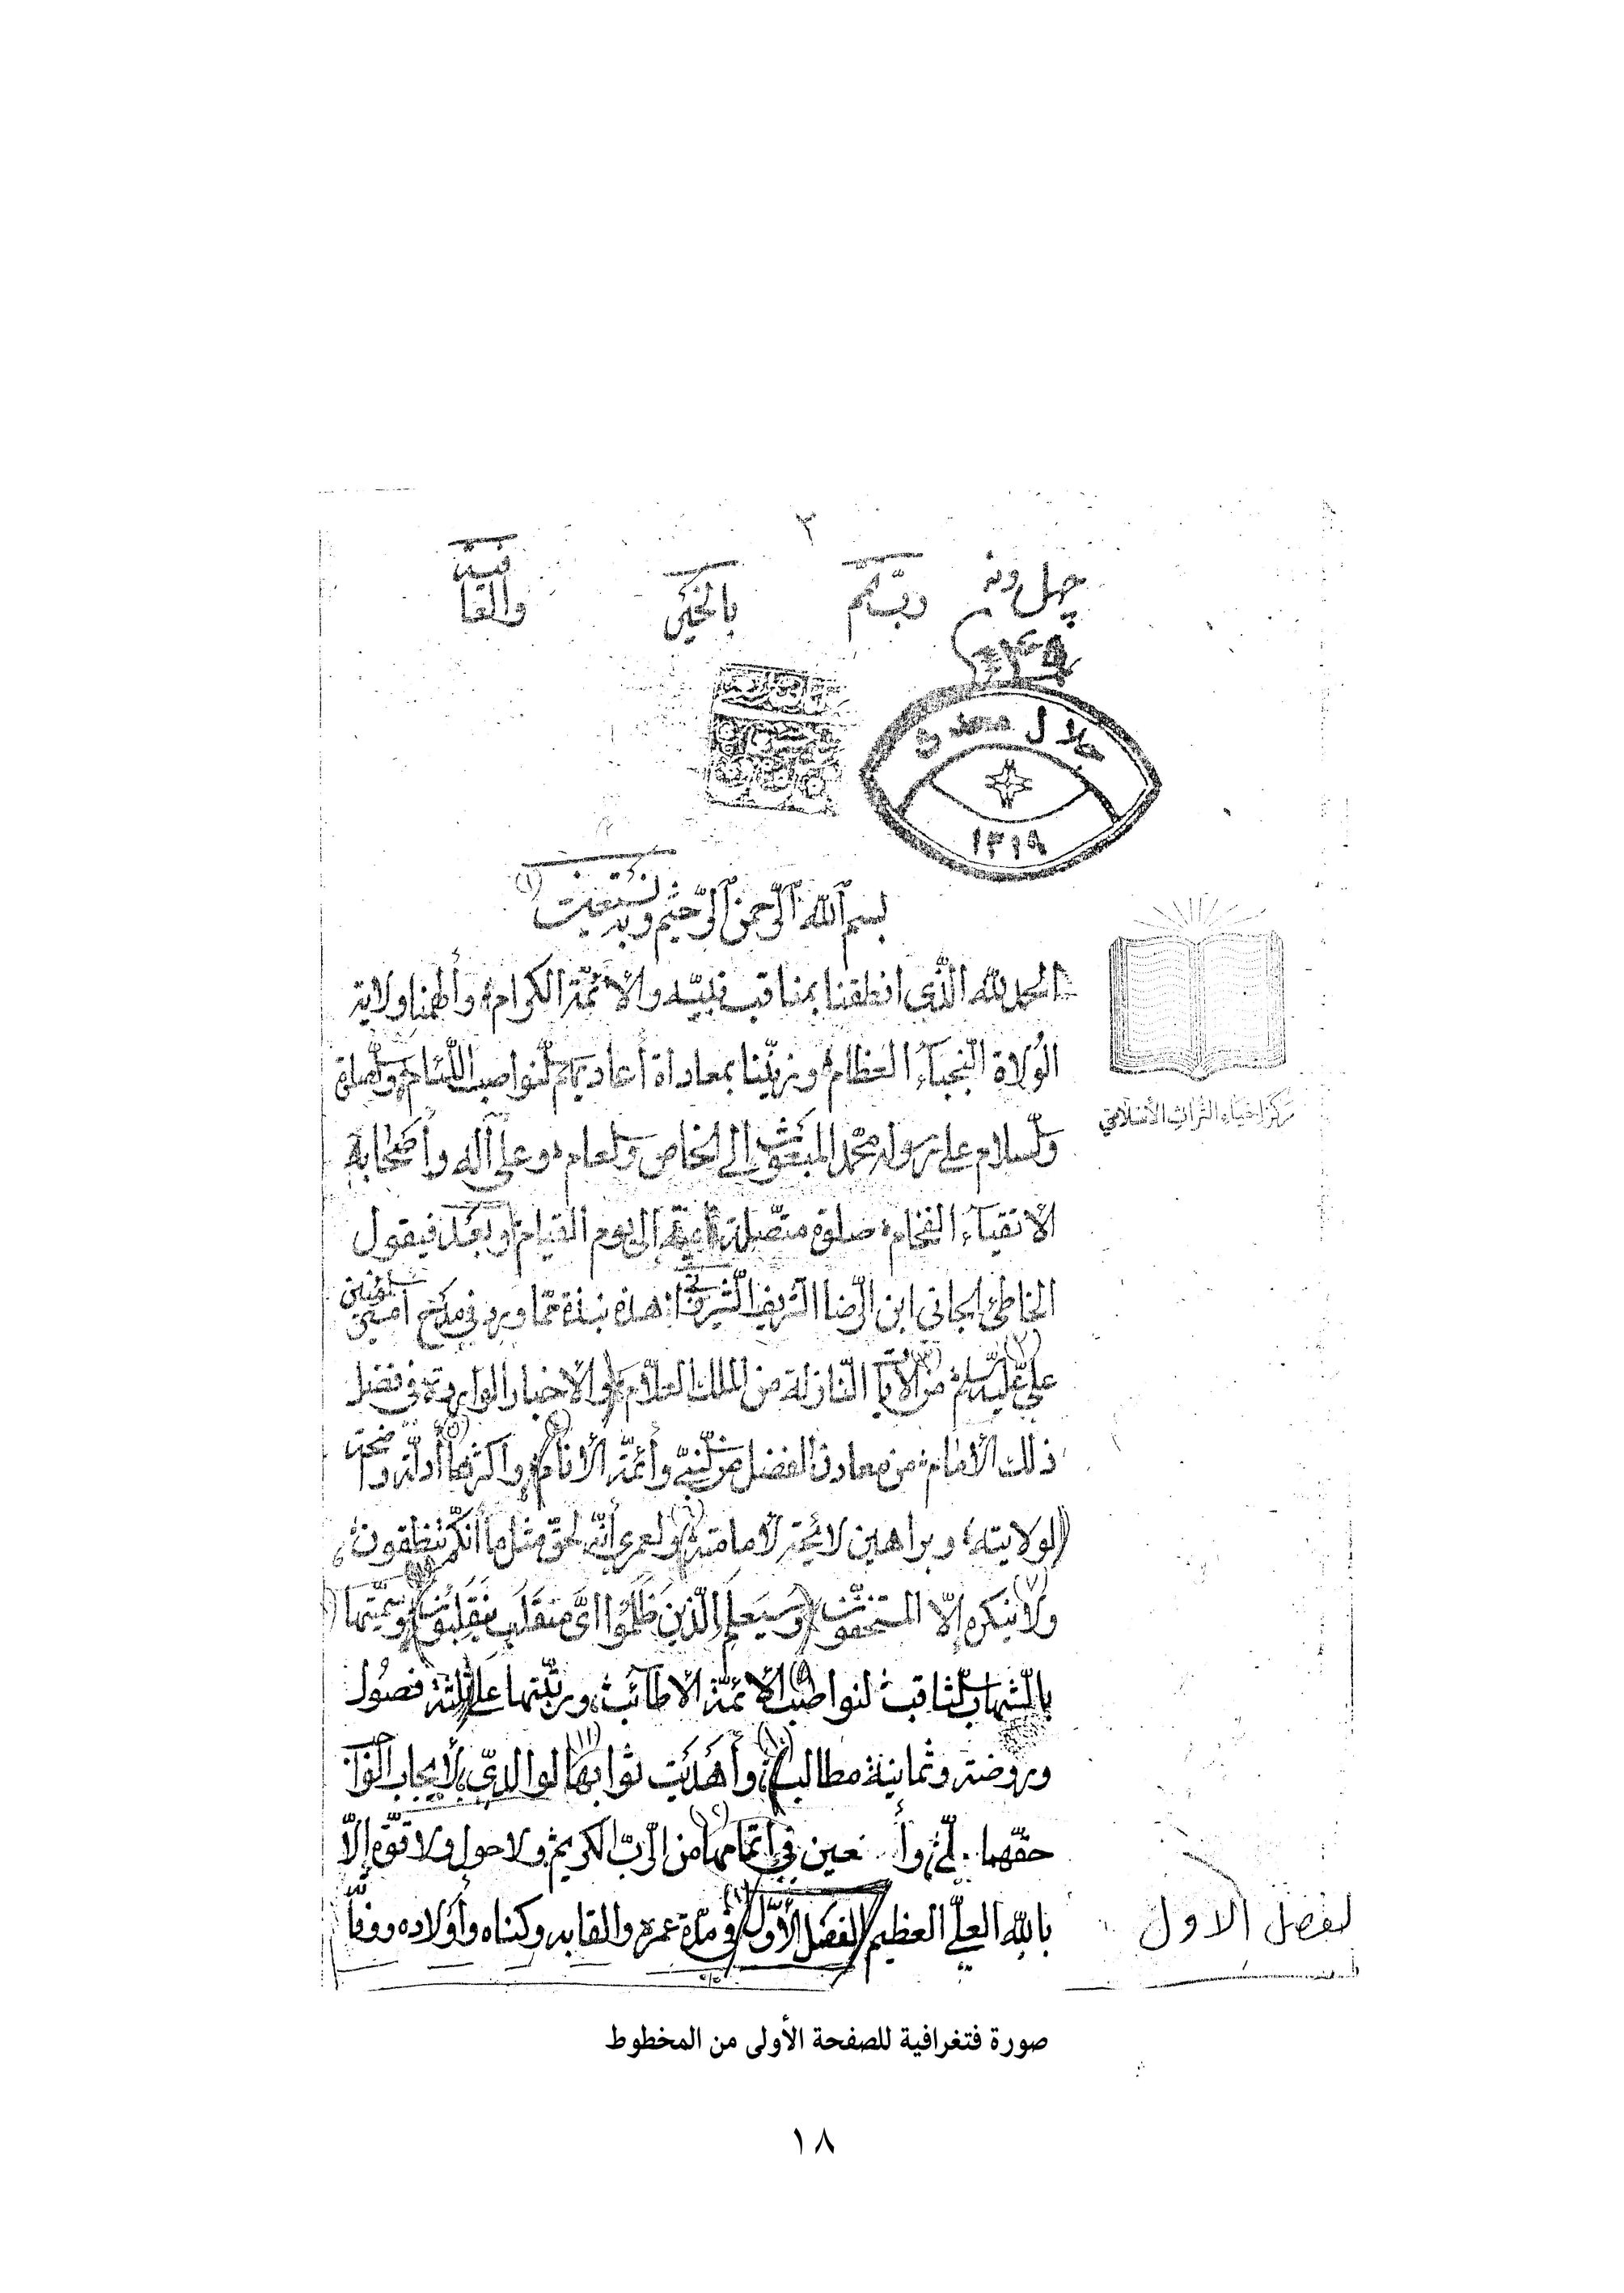 ٢
چهل ونه
ربّ تمّم
بالخير
والعافية
جلال محدث
١٣١٩
بسم الله الرّحمن الرّحيم وبه نستعين (١)
الحمد لله الّذي انطقنا بمناقب نبيّه والأئمّة الكرام وألهمنا ولاية
الوُلاة النّجباء العظام وزيّنا بمعاداة أعاديهم النّواصب اللّئام والصلوة
والسلام على رسوله محمّد المبعوث إلى الخاص والعام وعلى آله وأصحابه
الأتقياء الفخام صلوة متّصلة إلى يوم القيام وبعد فيقول
الخاطئ الجاني ابن الرّضا الشريف انّ هذه نبذة ممّا ورد في مدح أمير المؤمنين
عليّ عليه السلام من الآيات النّازلة من الملك العلّام والاخبار الواردة في فضل
ذلك الامام من معادن الفضل من النبيّ وأئمّة الأنام وأكثرها أدلّة واضحة
لولايته وبراهين لائحة لامامته ولعمري أنّه لحقّ مثل ما أنّكم تنطقون
ولا ينكره إلّا المستخفّون وسيعلم الّذين ظلموا أيّ منقلب ينقلبون وسمّيتها
بالشّهاب الثّاقب لنواصب الأئمّة الأطائب ورتّبتها على ثلثة فصول
وروضة وثمانية مطالب وأهديت ثوابها لوالديّ لايجاب
حقّهما عين في اتمامها من الرّبّ الكريم ولا حول ولا قوّة إلّا
بالله العليّ العظيم الفصل الأوّل في مدّة عمره والقابه وكناه وأولاده
مركز احياء التراث الأسلامي
لفصل الاول
صورة فتغرافية للصفحة الأولى من المخطوط
١٨